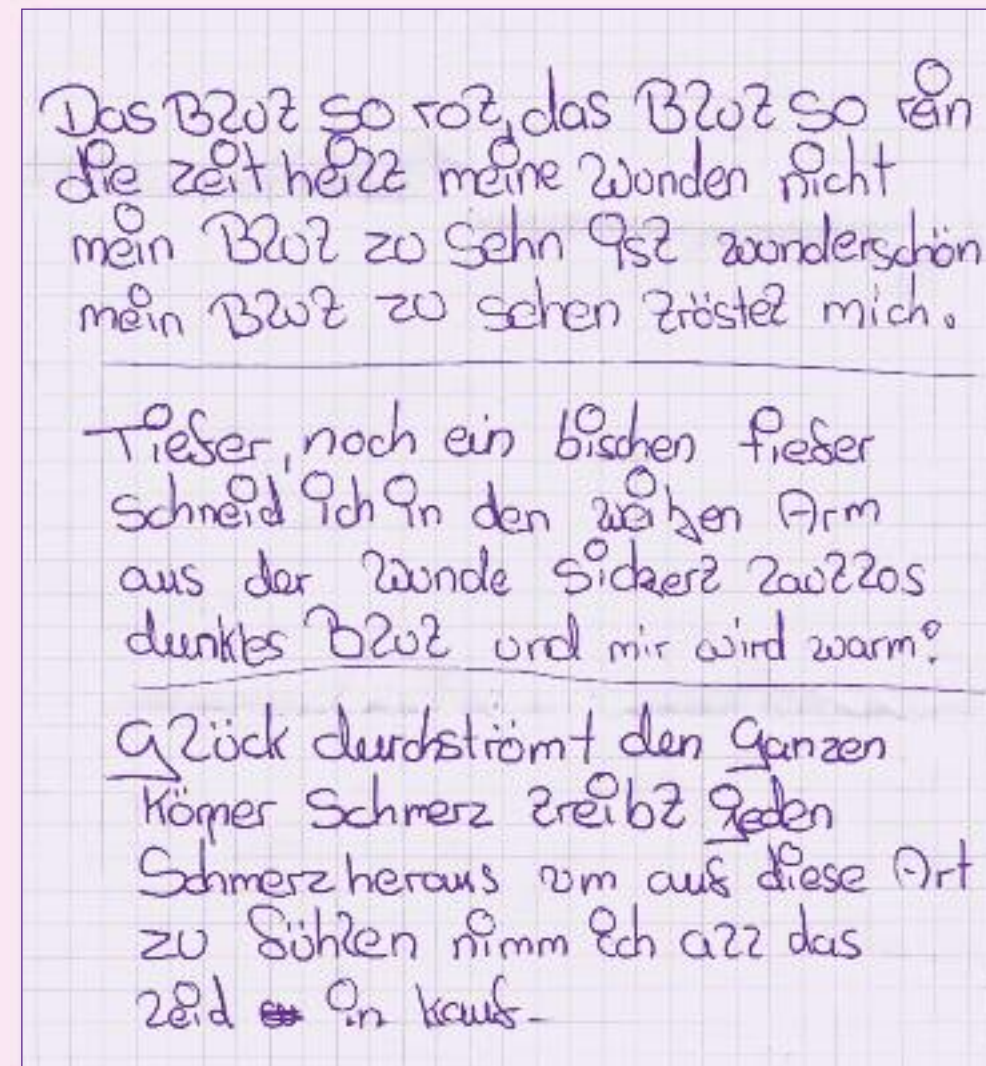 Das Blut so rot, das Blut so rein
die zeit heilt meine Wunden nicht
mein Blut zu sehn ist wunderschön
mein Blut zu sehen tröstet mich.
Tiefer, noch ein bischen tiefer
schneid ich in den weißen Arm
aus der Wunde sickert lautlos
dunkles Blut und mir wird warm.
Glück durchströmt den ganzen
Körper Schmerz treibt jeden
Schmerz heraus um auf diese Art
zu fühlen nimm ich all das
leid in kauf.